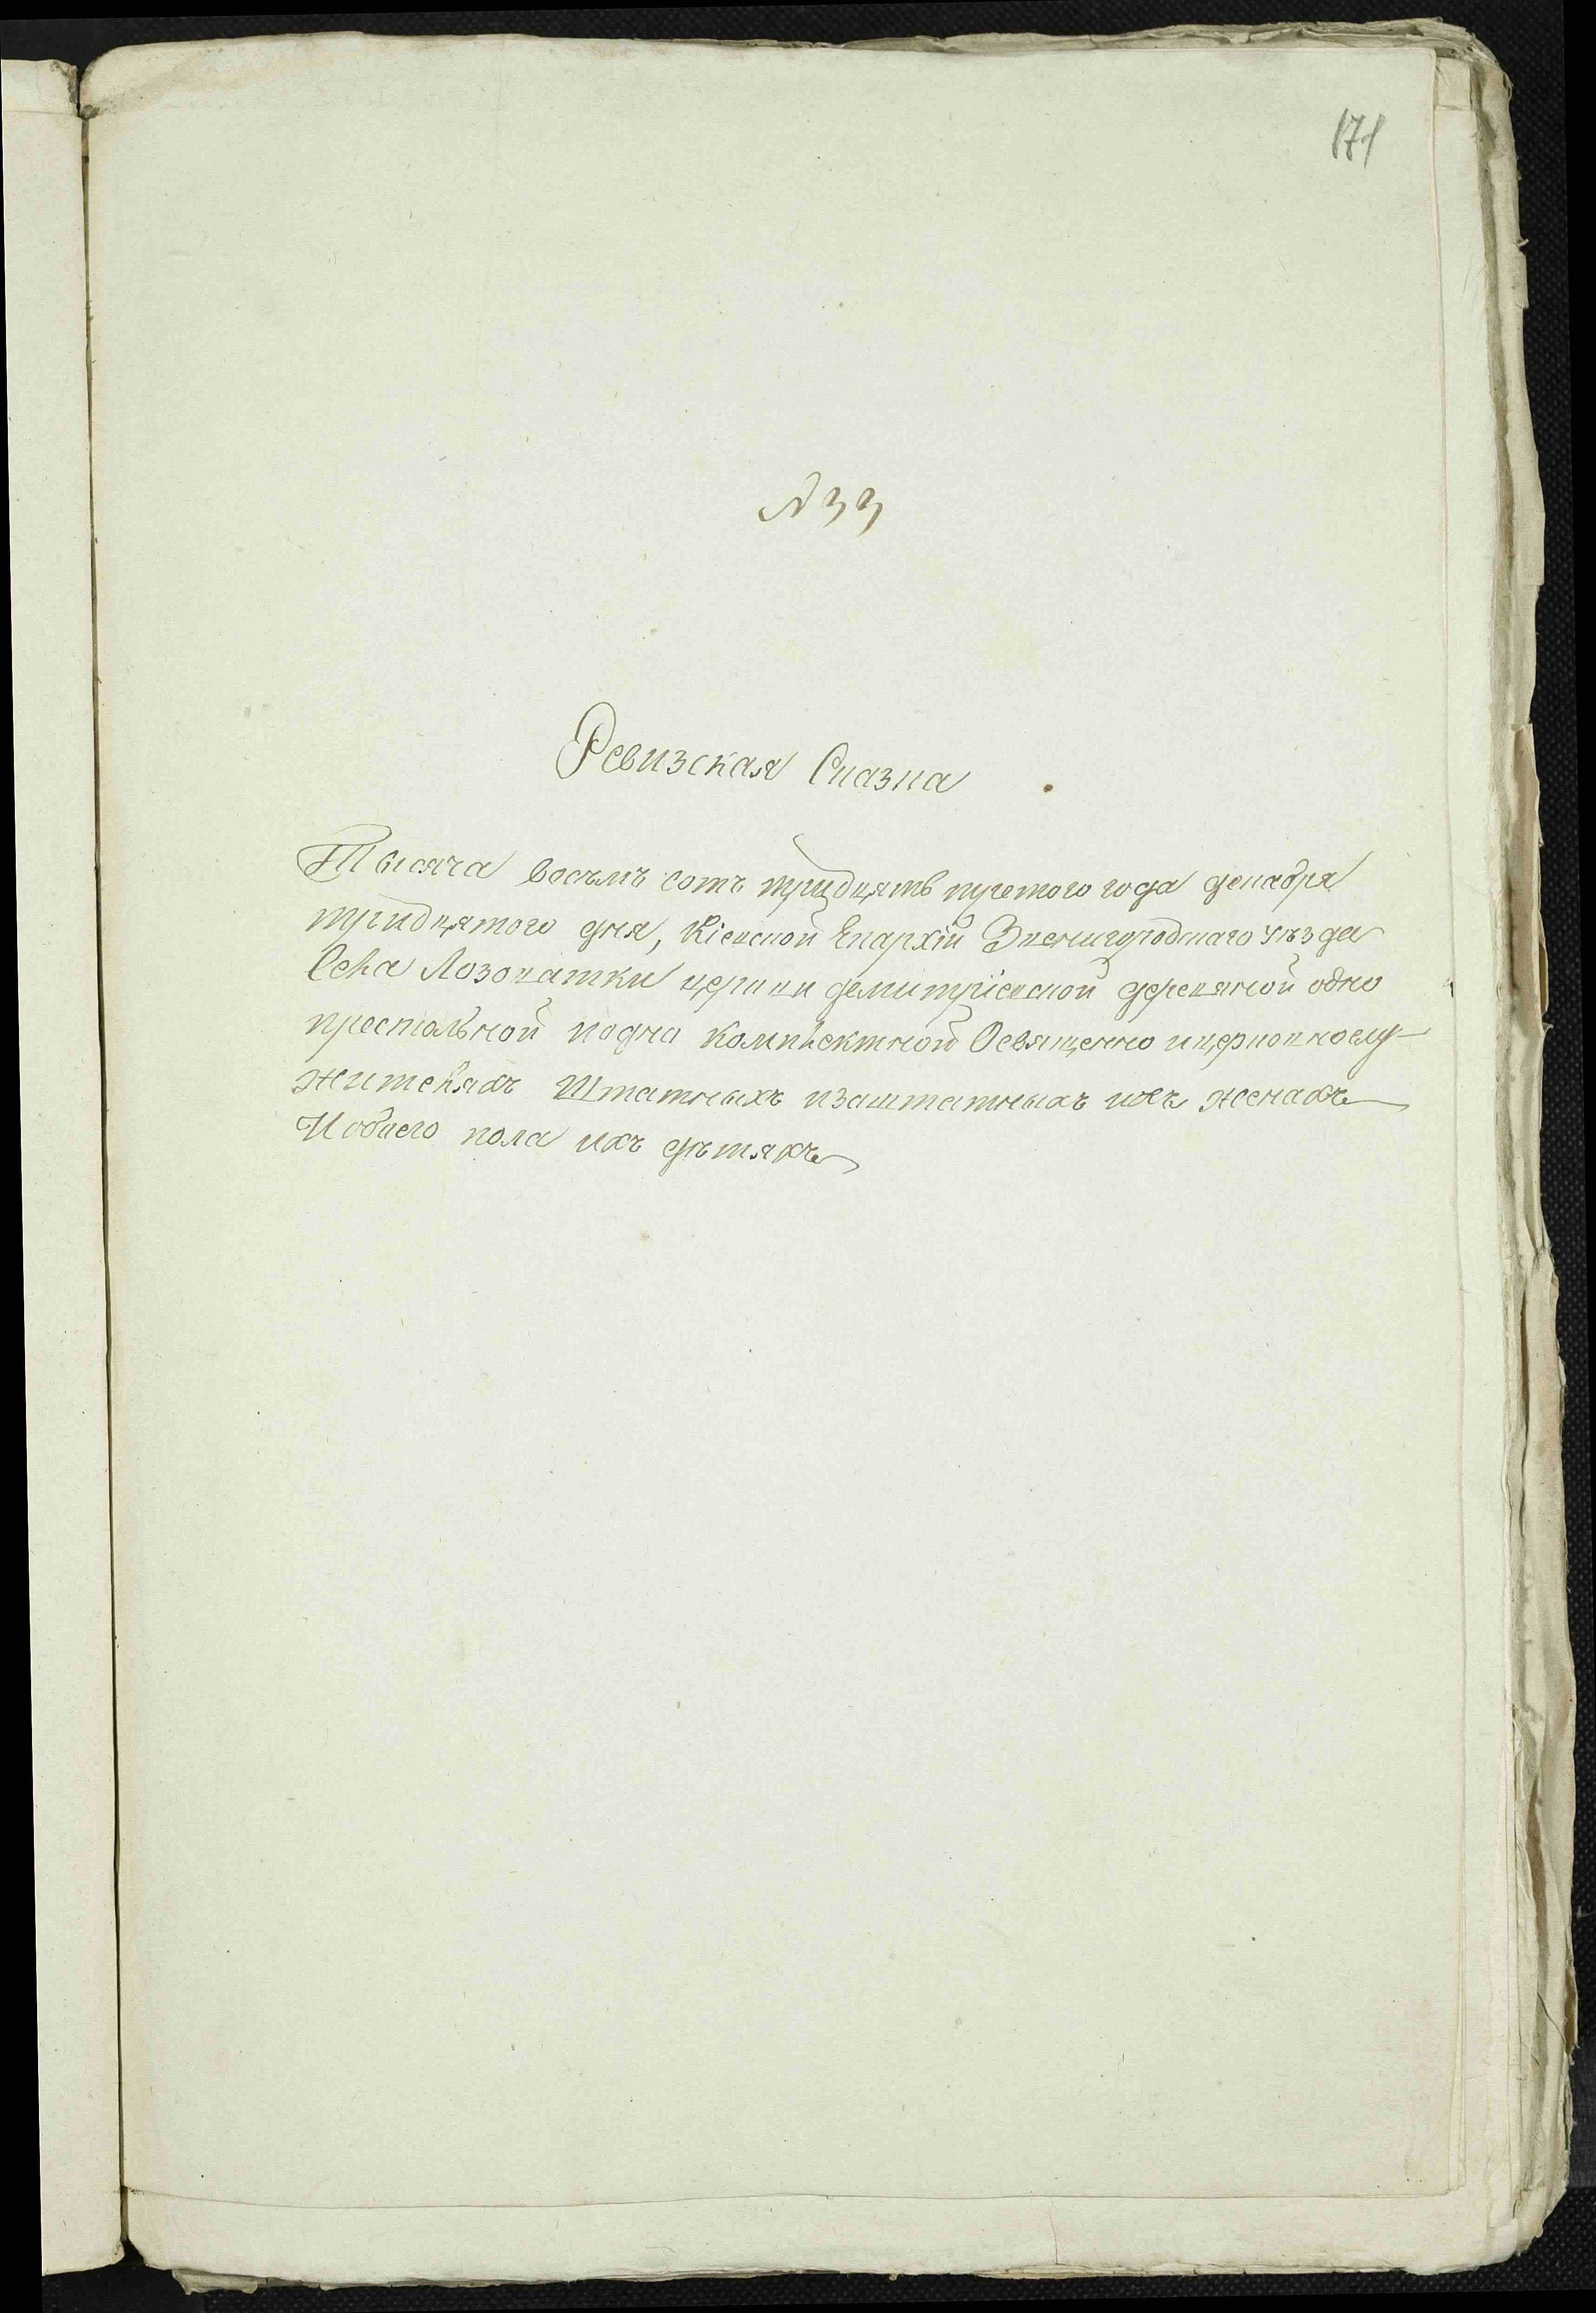 171
№ 33
Ревизская Сказка
Тысяча восѣмъ сотъ тридцять третого года декабря
тридцятого дня, Кіевской Епархіи Звенигородского уѣзда
Села Лозоватки церкви Демитріевской деревяной одно
престольной модно комплектной Освященно ицерковнослу-
жителяхъ Штатныхъ изаштатныхъ ихъ женахъ
И обоего пола ихъ дѣтяхъ